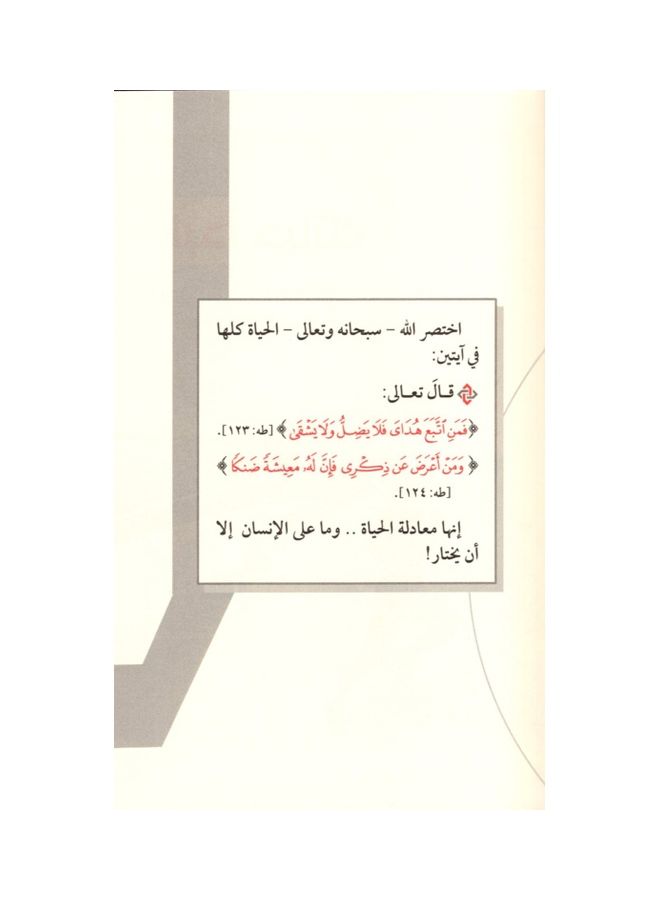 اختصر الله - سبحانه وتعالى - الحياة كلها
في آيتين:
قـالَ تعـالى:
﴿فَمَنِ ٱتَّبَعَ هُدَاىَ فَلَا يَضِلُّ وَلَا يَشْقَىٰ﴾ [طه: ١٢٣].
﴿وَمَنْ أَعْرَضَ عَن ذِكْرِى فَإِنَّ لَهُۥ مَعِيشَةً ضَنكًا﴾
[طه: ١٢٤].
إنها معادلة الحياة .. وما على الإنسان إلا
أن يختار!